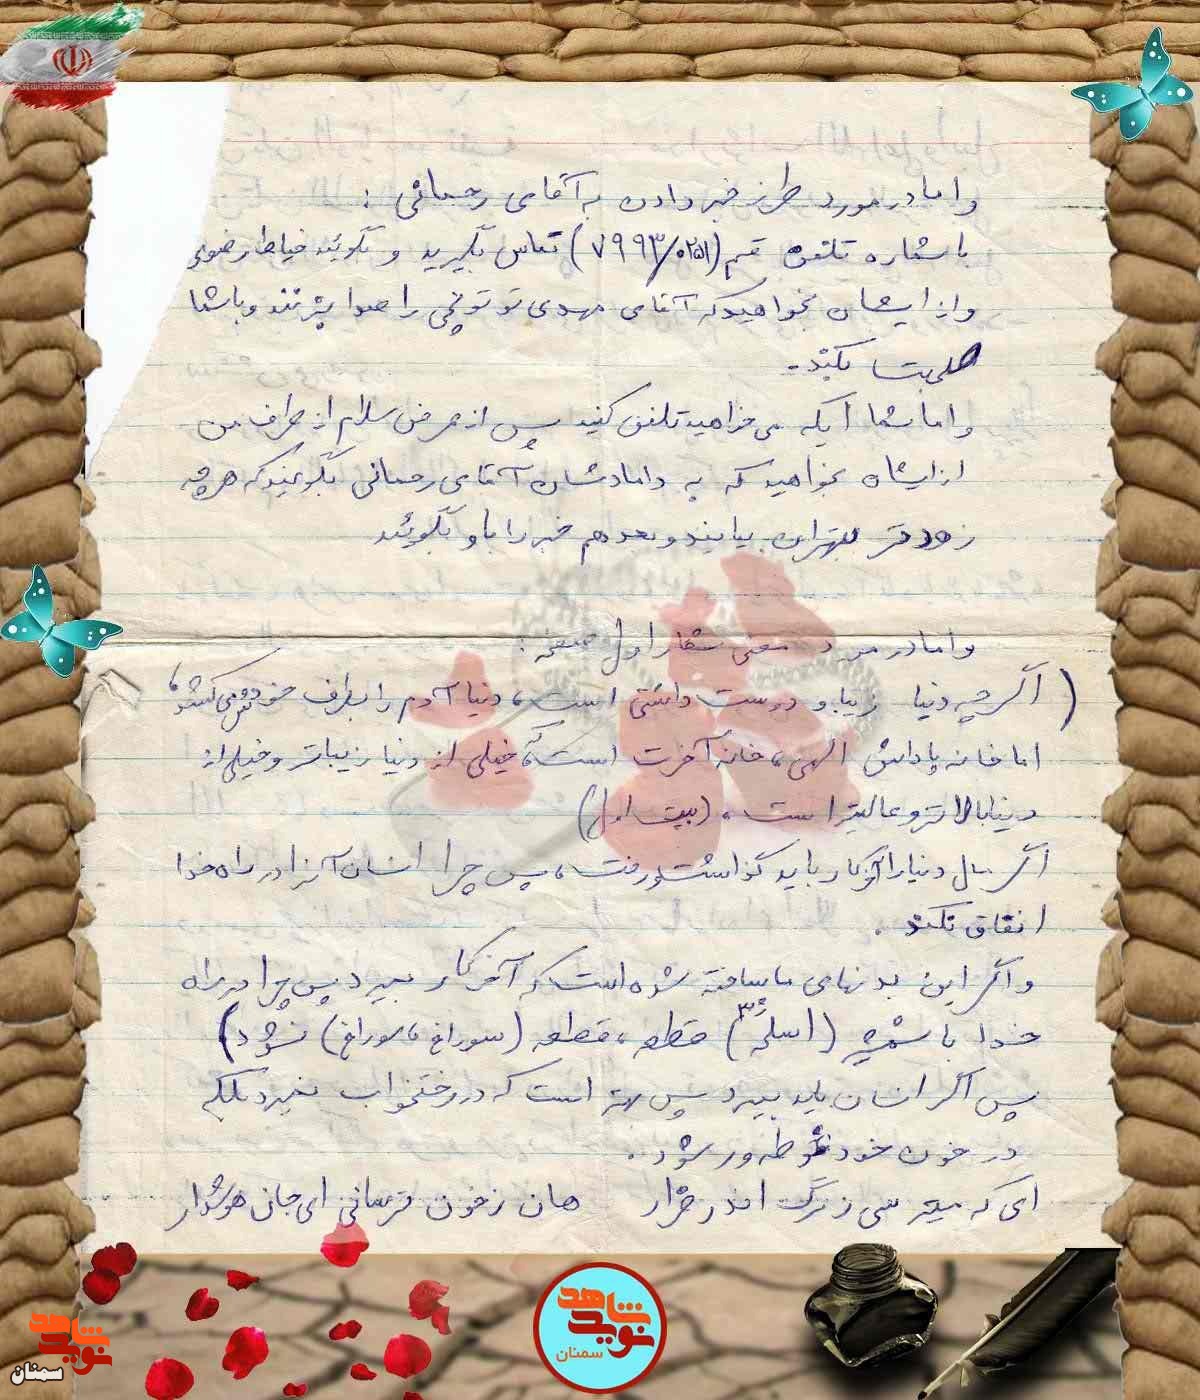 و اما در مورد طرز خبر دادن به آقای رحمانی :
با شماره تلفن قم (۷۹۹۳/۰۲۵۱) تماس بگیرید و بگوئید خیاط رضوی
و از ایشان بخواهید که آقای مهدی توتونچی را صدا بزنند و با شما
صحبت بکند.
و اما شما اینکه می‌خواهید تلفن کنید پس از عرض سلام از طرف من
از ایشان بخواهید که به دامادشان آقای رحمانی بگویند که هر چه
زودتر بتهران بیایند و بعد هم خبر را باو بگوئید
و اما در مورد معنی شعار اول صفحه :
( اگر چه دنیا زیبا و دوست داشتنی است، دنیا آدم را بطرف خودش می‌کشد،
اما خانه پاداش الهی، خانه آخرت است، خیلی از دنیا زیباتر و خیلی از
دنیا بالاتر و عالیتر است، (بیت اول)
اگر مال دنیا را آخر کار باید گذاشت و رفت، پس چرا انسان آنرا در راه خدا
انفاق نکند .
و اگر این بدنهای ما ساخته شده است که آخر کار بمیرد پس چرا در راه
خدا با شمشیر (اسلحه) قطعه، قطعه (سوراخ، سوراخ) نشود)
پس اگر انسان باید بمیرد پس بهتر است که در رختخواب نمیرد بلکه
در خون خود غوطه‌ور شود .
ای که میترسی ز مرگ اندر فرار هان ز خون ترسانی ای جان هوشدار
نوید شاهد
سمنان
نوید شاهد
سمنان